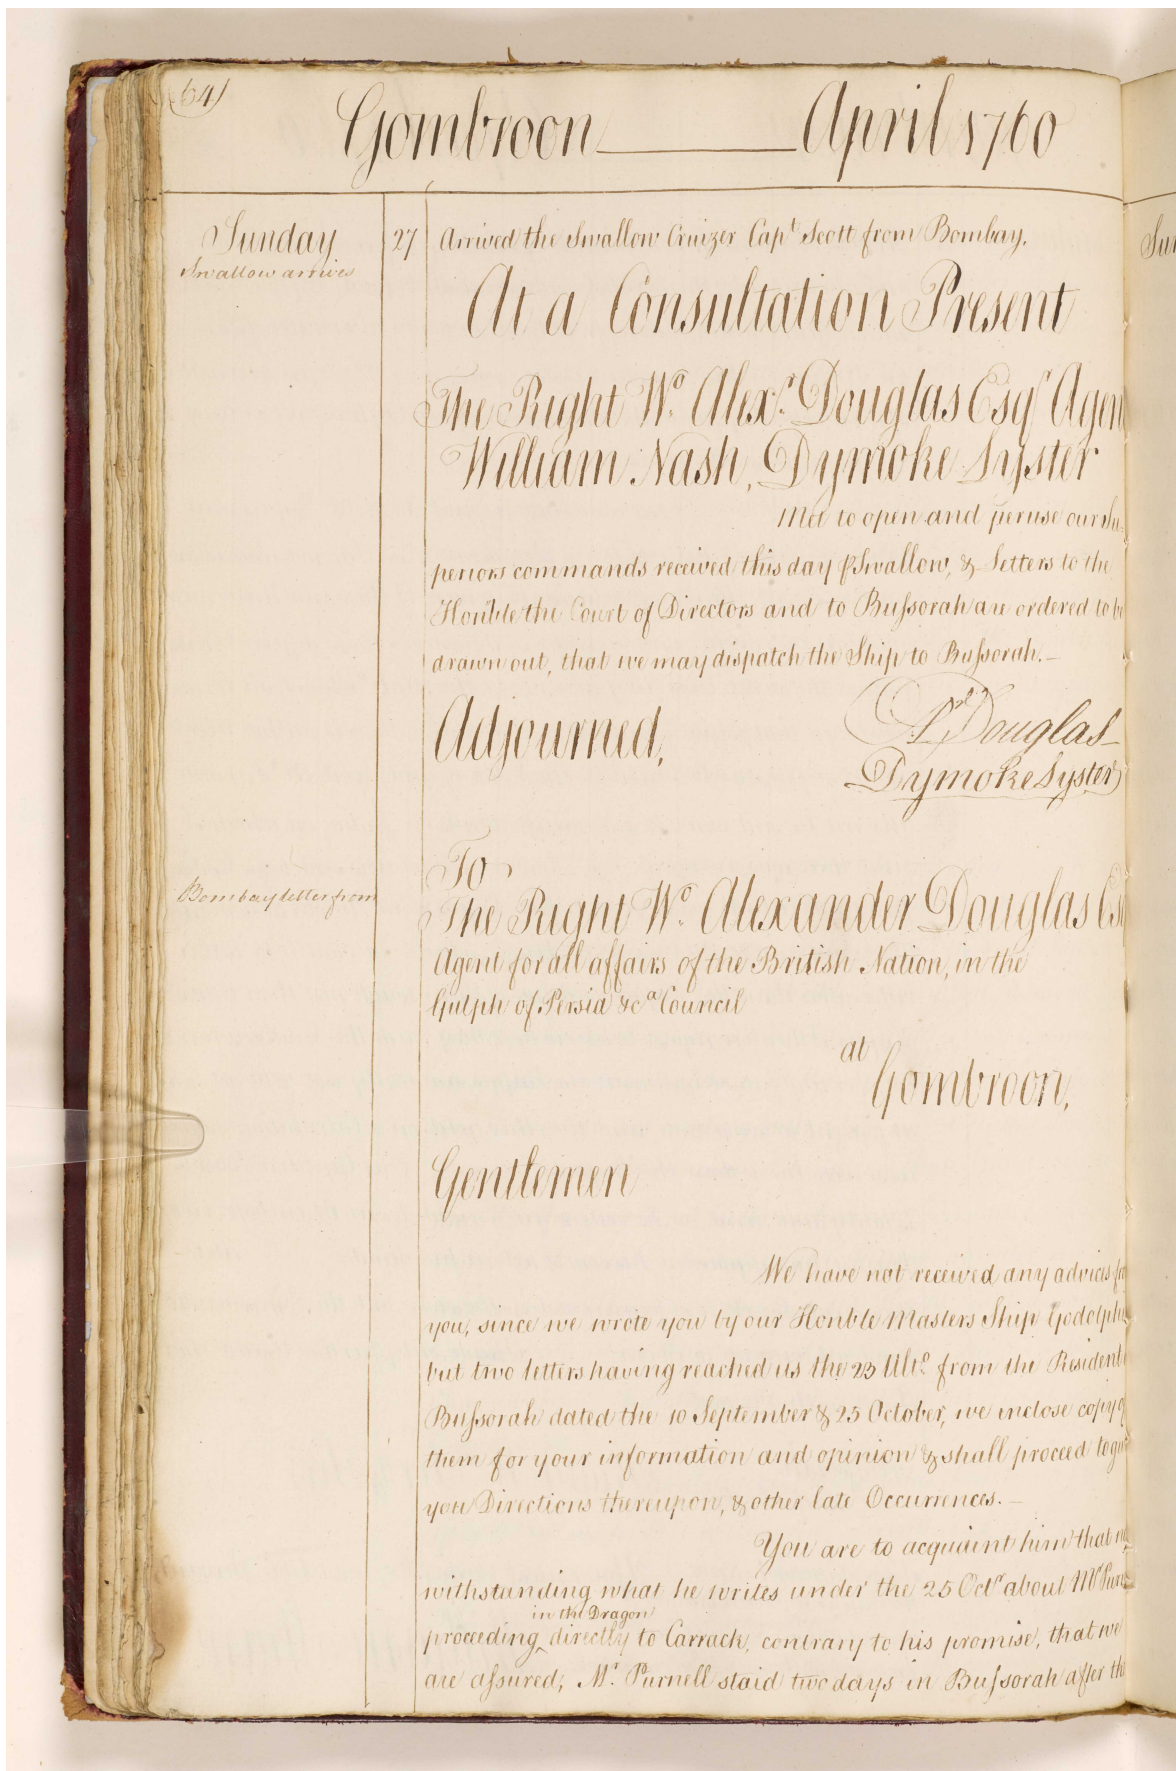 64)
Gombroon April 1760
Sunday 27 Arrived the Swallow Cruizer Capt Scott from Bombay.
Swallow arrives
At a Consultation Present
The Right Wo. Alexr. Douglas Esqr Agen
William Nash, Dymoke Lyster
Met to open and peruse our Su-
periors commands received this day ⅌ Swallow, & Letters to the
Honble the Court of Directors and to Bussorah are ordered to be
drawn out, that we may dispatch the Ship to Bussorah.
Adjourned,
Douglas
Dymoke Lyster
To
Bombay letter from
The Right Wo. Alexander Douglas Es
Agent for all affairs of the British Nation, in the
Gulph of Persia &ca Council
at
Gombroon,
Gentlemen
We have not received any advices
you, since we wrote you by our Honble Masters Ship Godolph
but two letters having reached us the 23 Ulto. from the Resident
Bussorah dated the 10 September & 25 October, we inclose copy
them for your information and opinion & shall proceed to
you Directions thereupon, & other late Occurrences.
You are to acquaint him that
withstanding what he writes under the 25 Octr about Mr Pur
in the Dragon
proceeding ^ directly to Carrack, contrary to his promise, that we
are assured; Mr. Purnell staid two days in Bussorah after th